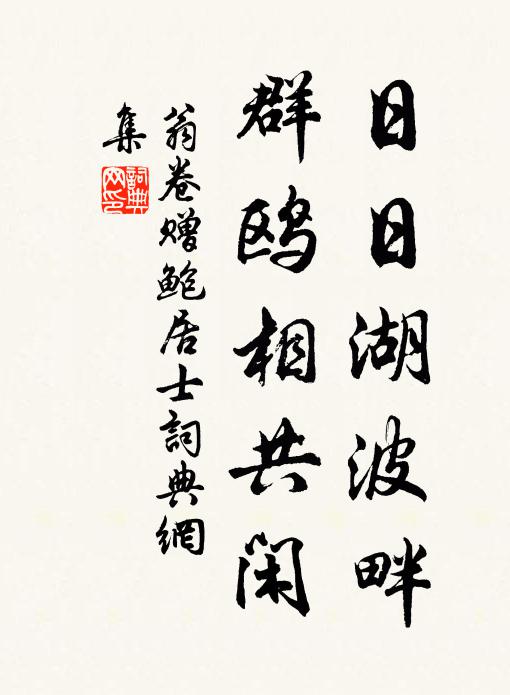 日日湖波畔
群鸥相共闲
翁卷赠鲍居士詞典網
集
詞典网印